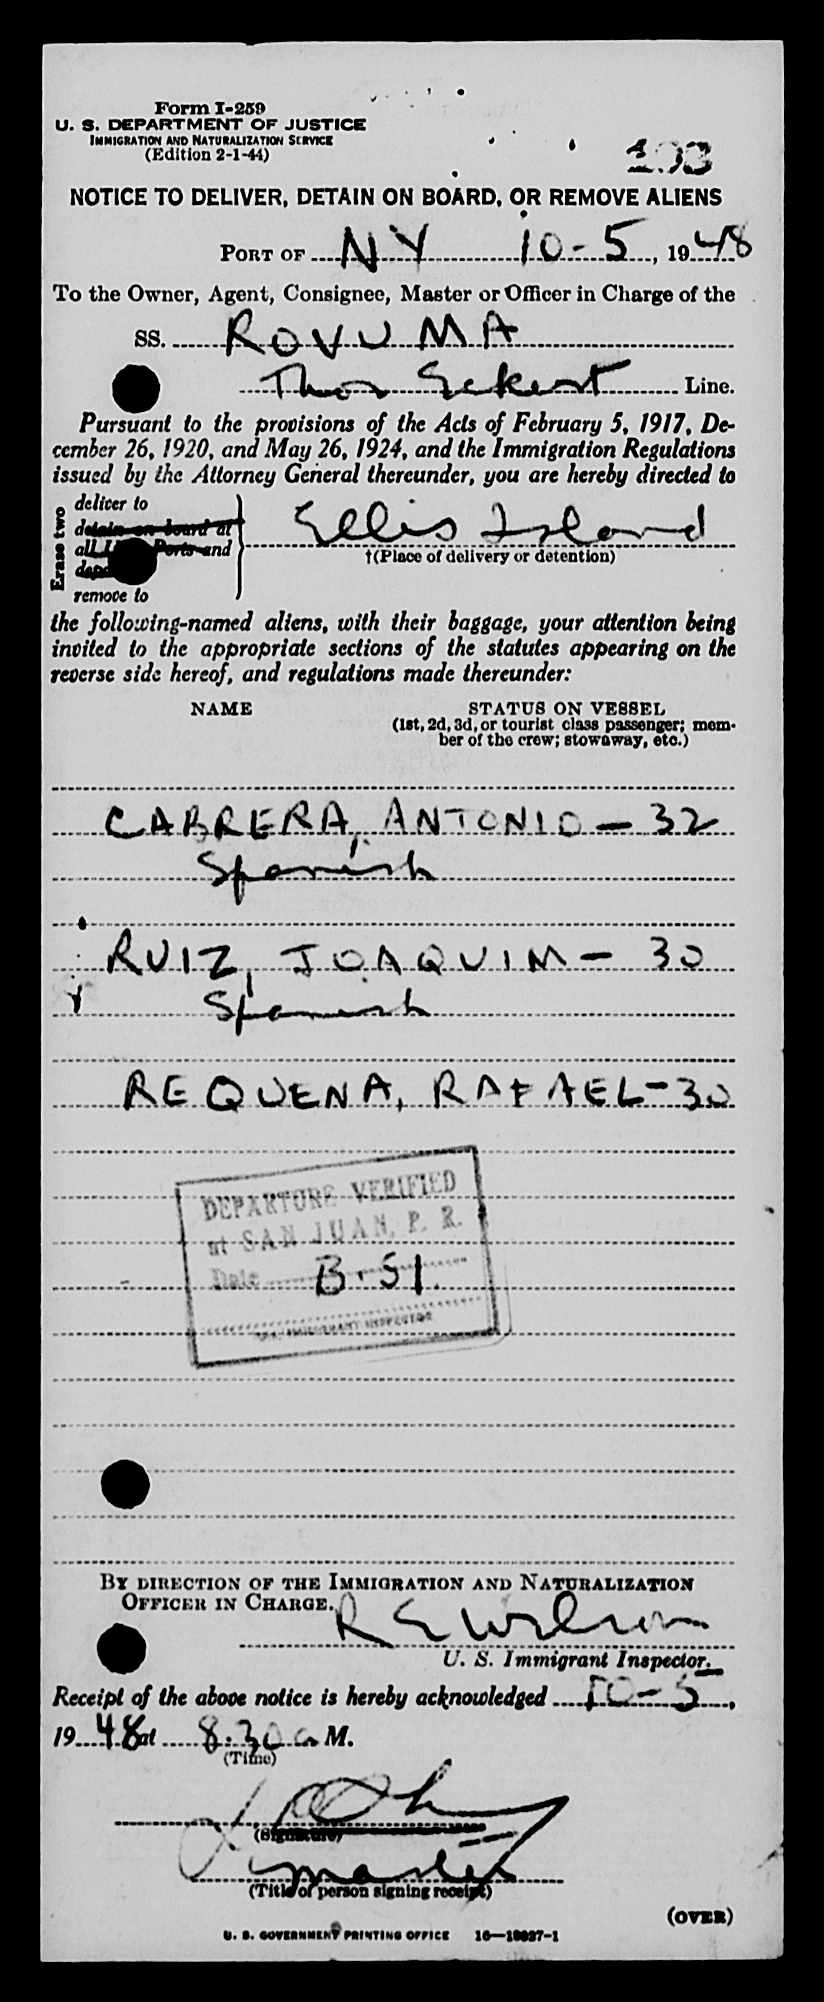 Form I-259
U. S. DEPARTMENT OF JUSTICE
IMMIGRATION AND NATURALIZATION SERVICE
(Edition 2-1-44)
NOTICE TO DELIVER, DETAIN ON BOARD, OR REMOVE ALIENS
PORT OF NY 10-5, 1948
To the Owner, Agent, Consignee, Master or Officer in Charge of the
SS. ROVUMA
Thor Eckert Line.
Pursuant to the provisions of the Acts of February 5, 1917, De-
cember 26, 1920, and May 26, 1924, and the Immigration Regulations
issued by the Attorney General thereunder, you are hereby directed to
Erase two
deliver to
detain on board at
all Ports and
remove to
Ellis Island
†(Place of delivery or detention)
the following-named aliens, with their baggage, your attention being
invited to the appropriate sections of the statutes appearing on the
reverse side hereof, and regulations made thereunder:
NAME STATUS ON VESSEL
(1st, 2d, 3d, or tourist class passenger; mem-
ber of the crew; stowaway, etc.)
CABRERA, ANTONIO - 32
Spanish
RUIZ, JOAQUIM - 30
Spanish
REQUENA, RAFAEL - 30
DEPARTURE VERIFIED
at SAN JUAN, P. R.
Date B-51.
IMMIGRANT INSPECTOR
BY DIRECTION OF THE IMMIGRATION AND NATURALIZATION
OFFICER IN CHARGE.
R E Wilson
U. S. Immigrant Inspector.
Receipt of the above notice is hereby acknowledged 10-5,
1948 at 8:30 a M.
(Time)
(Signature)
master
(Title of person signing receipt)
(OVER)
U. S. GOVERNMENT PRINTING OFFICE